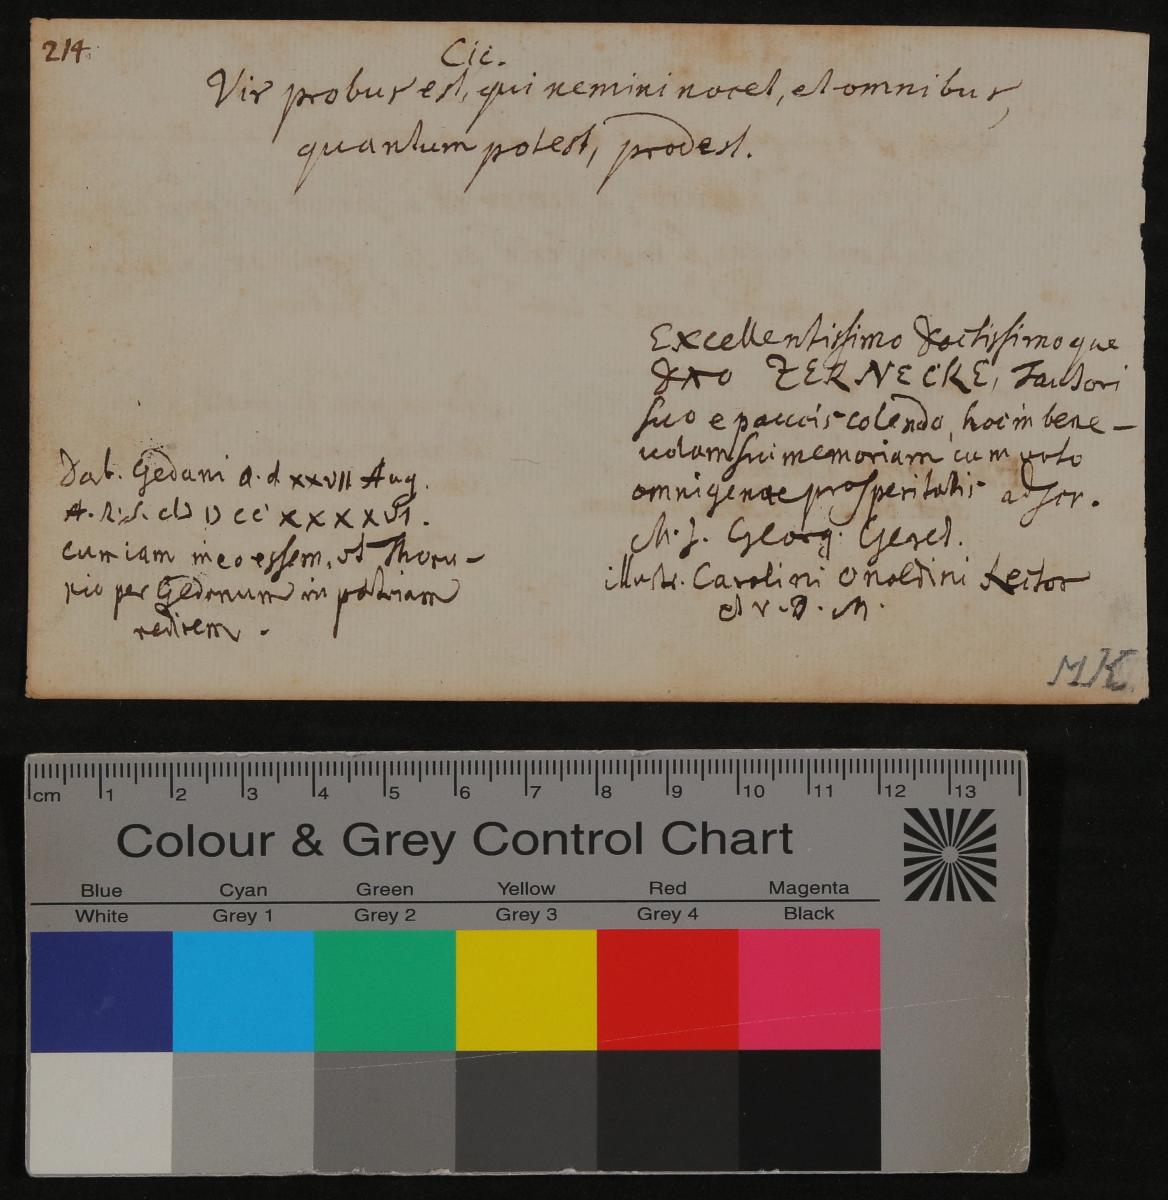 214.
Cic.
Vir probus est, qui nemini nocet, et omnibus,
quantum potest, prodest.
Excellentissimo doctissimoque
Dno ZERNECKE, Fautori
suo e paucis colendo, hoc in bene-
volam sui memoriam cum voto
omnigenae prosperitatis adscr.
M. J. Georg.
illustr. Carolini Onoldini Rector
et v. D. M.
Dab. Gedani a. d xxvII Aug.
A. R. S. cIɔ Iɔ cc xxxxVI.
cum iam in eo essem, ut Thoru-
nio per Gedanum in patriam
redirem.
MK.
cm 1 2 3 4 5 6 7 8 9 10 11 12 13
Colour & Grey Control Chart
Blue Cyan Green Yellow Red Magenta
White Grey 1 Grey 2 Grey 3 Grey 4 Black